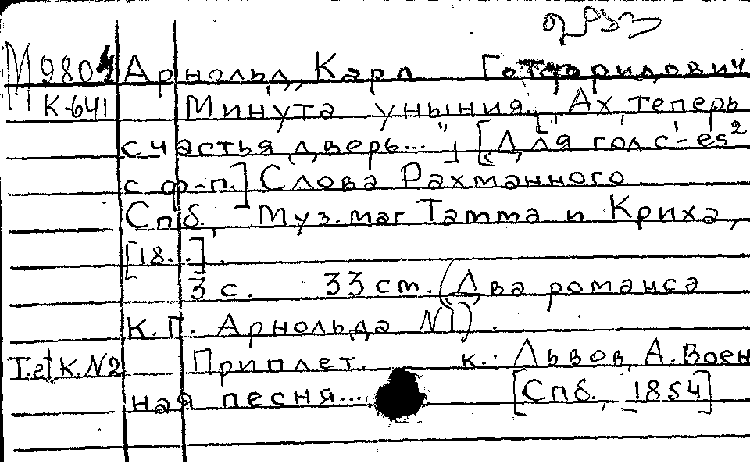 М980 Арнольд, Карл Готфридович
К-641 Минута уныния. "Ах, теперь
счастья дверь..." [Для гол. c'-es²
с ф-п.] Слова Рахманного
Спб., Муз. маг. Гамма и Криха,
[18..].
3 с. 33 см. (Два романса
К.Г. Арнольда N1).
I.et.K.N2 Приплет. к: Львов, А. Воен
ная песня.... [Спб., 1854]